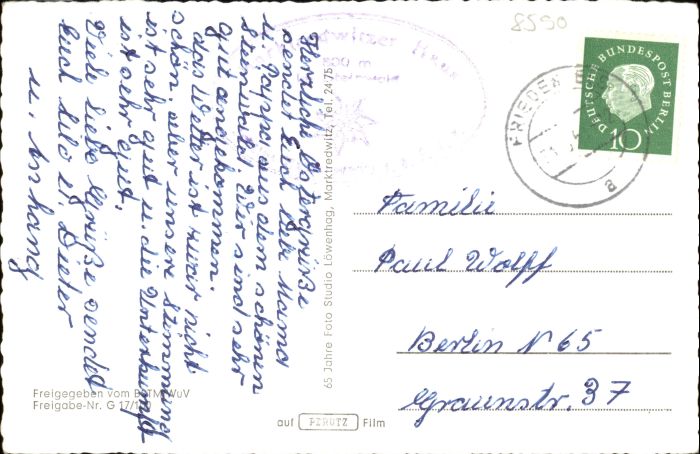 8590
DEUTSCHE BUNDESPOST BERLIN
10
FRIEDEN
a
Herzliche Ostergrüße
sendet Euch die Mama
u. Pappi aus dem schönen
Steinwald. Wir sind sehr
gut angekommen.
das Wetter ist zwar nicht
schön. aber unsere Stimmung
ist sehr gut u. die Unterkunft
ist sehr gut.
Viele liebe Grüße sendet
Euch Lilo u. Dieter
u. Anhang
65 Jahre Foto Studio Löwenhag, Marktredwitz, Tel. 24 75
Familie
Paul Wolff
Berlin N 65
Graunstr. 37
Freigegeben vom
WuV
Freigabe-Nr. G 17/
auf PERUTZ Film